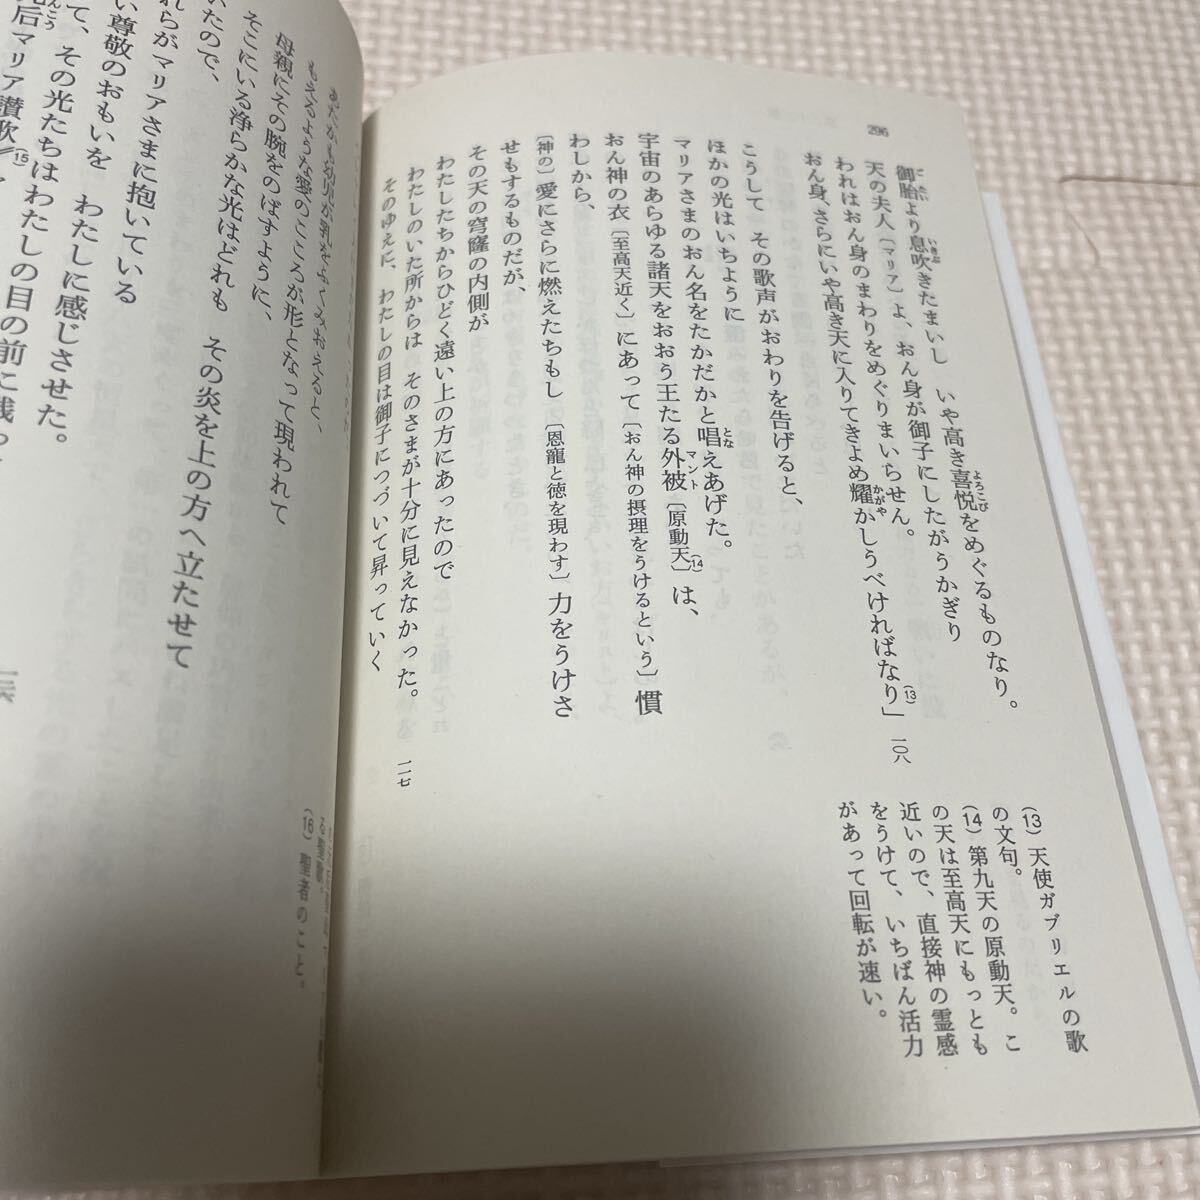 296
御胎より息吹きたまいし　いや高き喜悦をめぐるものなり。
天の夫人〔マリア〕よ、おん身が御子にしたがうかぎり
われはおん身のまわりをめぐりまいらせん。
おん身、さらにいや高き天に入りてきよめ耀かしうべければなり」(13) 一〇八
こうして　その歌声がおわりを告げると、
ほかの光はいちように
マリアさまのおん名をたかだかと唱えあげた。
宇宙のあらゆる諸天をおおう王たる外被〔原動天〕(14)は、
おん神の衣〔至高天近く〕にあって〔おん神の摂理をうけるという〕慣
わしから、
〔神の〕愛にさらに燃えたちもし〔恩寵と徳を現わす〕力をうけさ
せもするものだが、
その天の穹窿の内側が
わたしたちからひどく遠い上の方にあったので
わたしのいた所からは　そのさまが十分に見えなかった。 一一七
そのゆえに、わたしの目は御子につづいて昇っていく
(13) 天使ガブリエルの歌
の文句。
(14) 第九天の原動天。こ
の天は至高天にもっとも
近いので、直接神の霊感
をうけて、いちばん活力
があって回転が速い。
もえるような愛のこころが形となって現われて
母親にその腕をのばすように、
そこにいる浄らかな光はどれも　その炎を上の方へ立たせて
いたので、
れらがマリアさまに抱いている
い尊敬のおもいを　わたしに感じさせた。
て、その光たちはわたしの目の前に残っ
后マリア讃歌(15)
る聖歌。
(16) 聖者のこと。